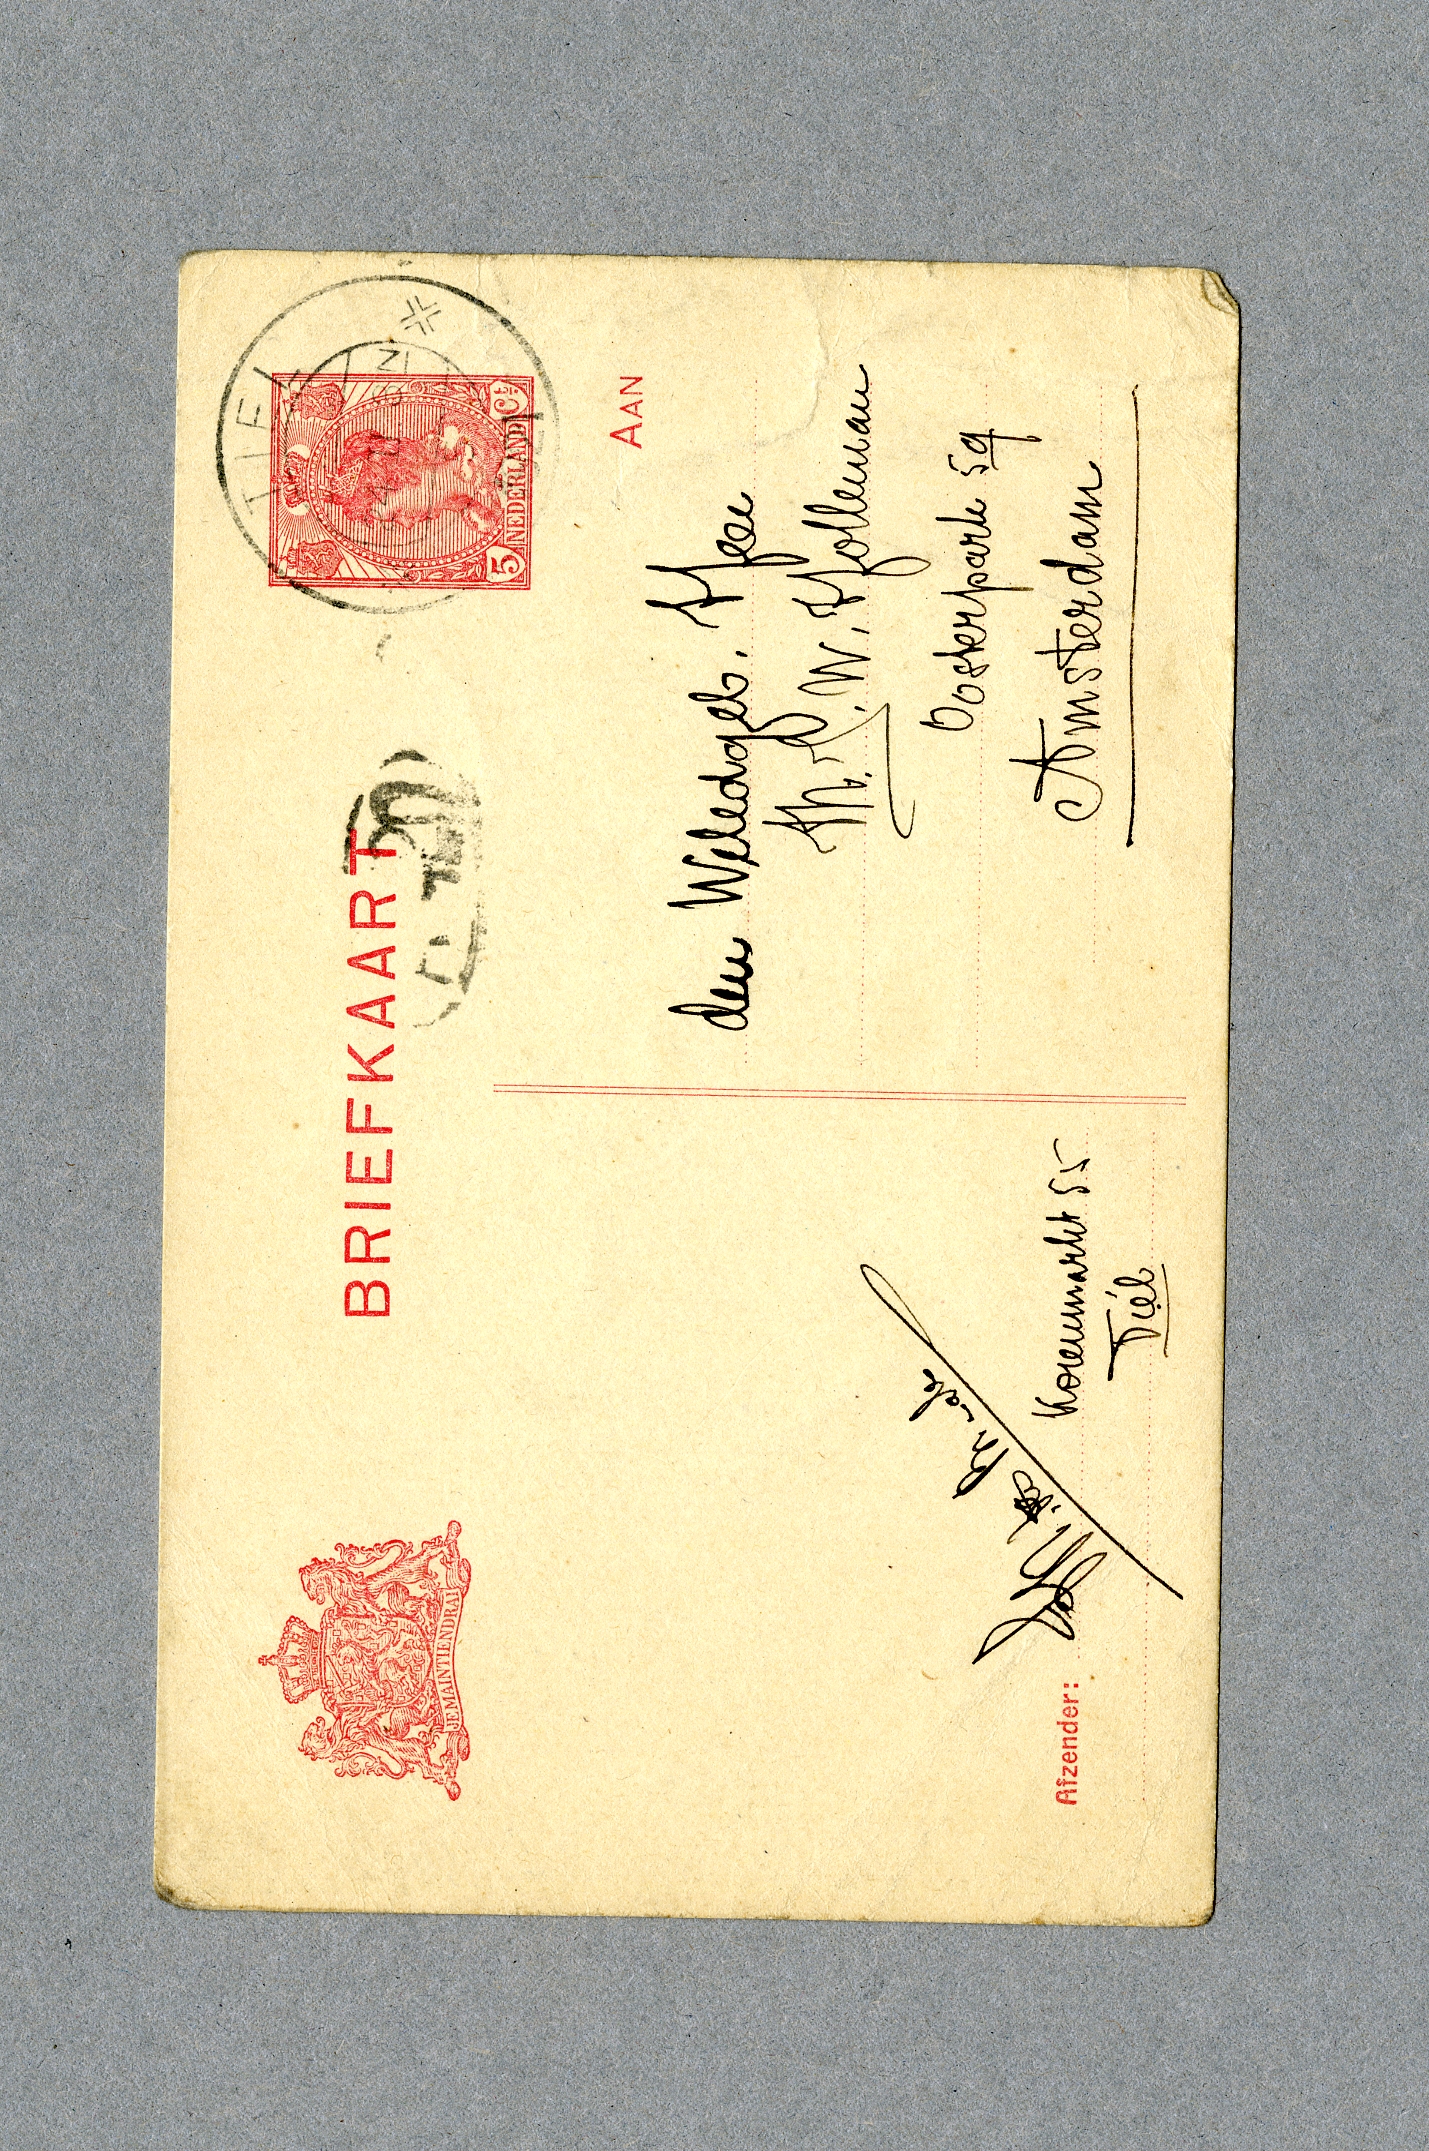 BRIEFKAART
JE MAINTIENDRAI
TIEL
5 NEDERLAND Ct
AAN
den Weledgeb. Heer
W. Holleman
Oosterpark 59
Amsterdam
Afzender:
Korenmarkt 55
Tiel